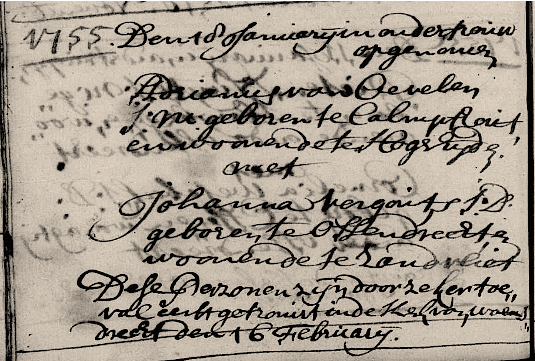 1755. Den 18 Januarij in ondertrouw
opgenomen
Adrianus van Oevelen
J: M: geboren te Calmpthout
en woonende te Hogerijde
met
Johanna Vergouts J: D:
geboren te Ossendrecht en
woonende te Zandvliet
Dese Perzonen zijn door zeker toe„
val eerst getrouwt in de
drecht den 16 February.